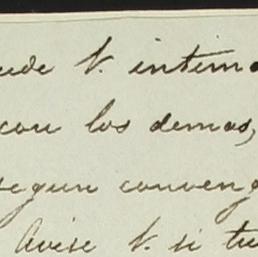 uede V. intima
con los demas,
segun conveng
Avise V. si tu